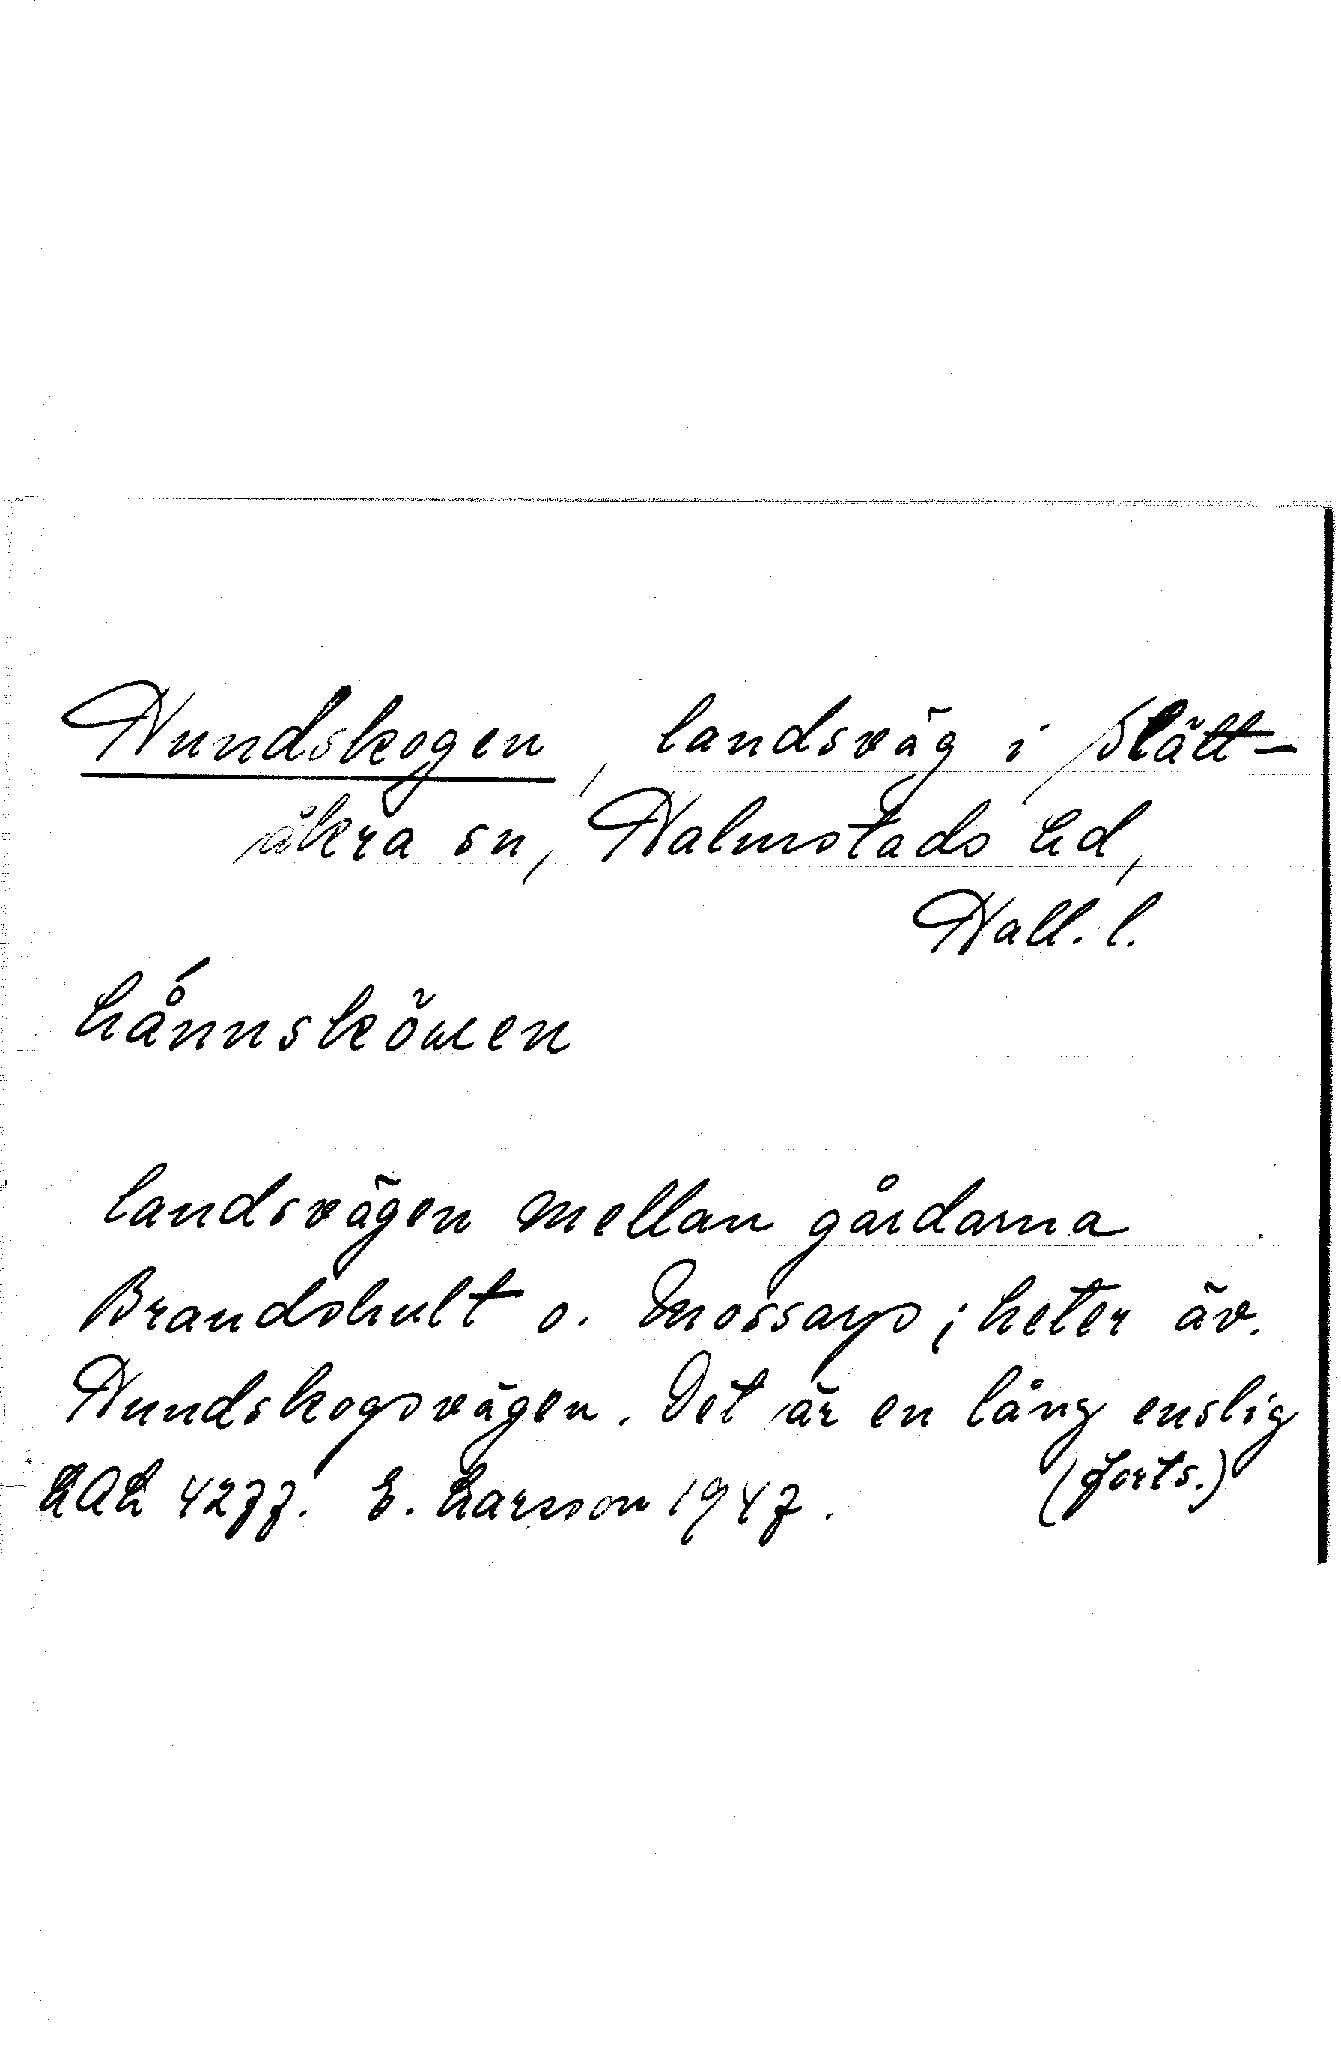 Hundskogen, landsväg i Slätt-
åkra sn, Halmstads hd,
Hall. l.
hånnsköuen
landsvägen mellan gårdarna
Brandshult o. Mossarp; heter äv.
Hundskogsvägen. Det är en lång enslig
(forts.)
LAL 4277. E. Larsson 1947.